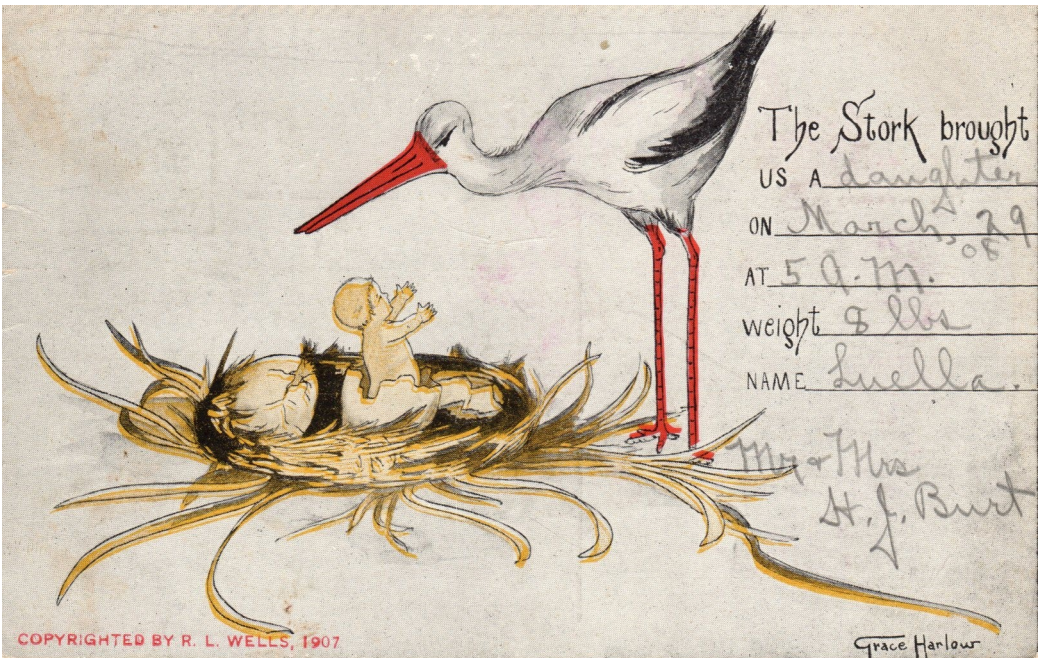 The Stork brought
US A daughter
ON March, 29
08
AT 5 A.M.
weight 8 lbs
NAME Luella.
Mr & Mrs
H. J. Burt
COPYRIGHTED BY R. L. WELLS, 1907
Grace Harlow